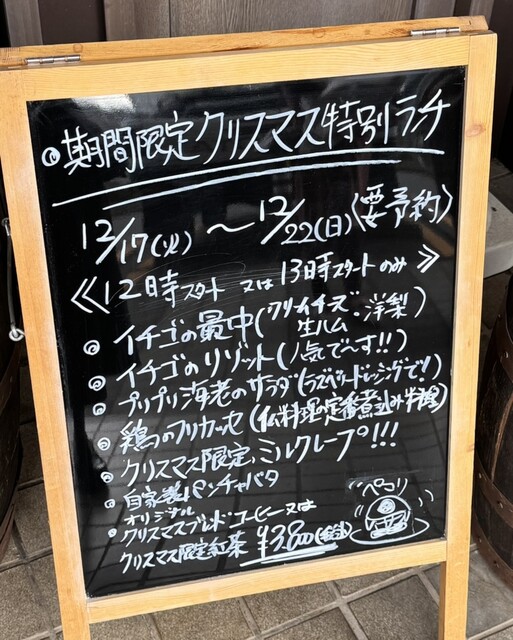 期間限定クリスマス特別ランチ
12/17(火)～12/22(日)〈要予約〉
≪12時スタート 又は 13時スタートのみ≫
イチゴの最中(クリームチーズ・洋梨)
生ハム
イチゴのリゾット(人気で～す!!)
プリプリ海老のサラダ(ラズベリードレッシングで!!)
鶏のフリカッセ(仏料理の定番煮込み料理)
クリスマス限定ミルクレープ!!!
自家製パンチャバタ
オリジナル
クリスマスブレンドコーヒー又は
クリスマス限定紅茶 ¥3,800
ペコリ